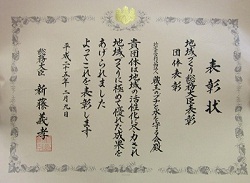 表彰状
地域づくり総務大臣表彰
団体表彰
貴団体は地域の活性化に尽力され
地域づくりに極めて優れた成果を
あげられました
よってこれを表彰します
平成二十五年二月九日
総務大臣 新藤義孝